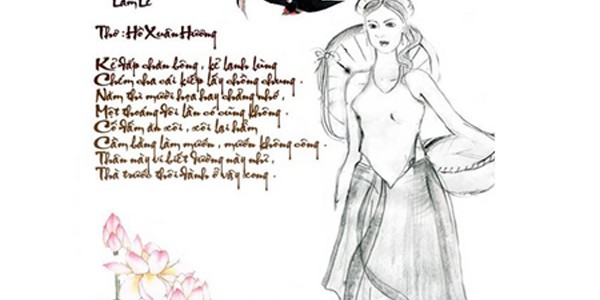 Làm Lẽ
Thơ : Hồ Xuân Hương
Kẻ đắp chăn bông, kẻ lạnh lùng
Chém cha cái kiếp lấy chồng chung.
Năm thì mười họa hay chăng nhớ,
Một tháng đôi lần có cũng không.
Cố đấm ăn xôi, xôi lại hẩm
Cầm bằng làm mướn, mướn không công.
Thân này ví biết dường này nhỉ,
Thà trước thôi đành ở vậy xong.